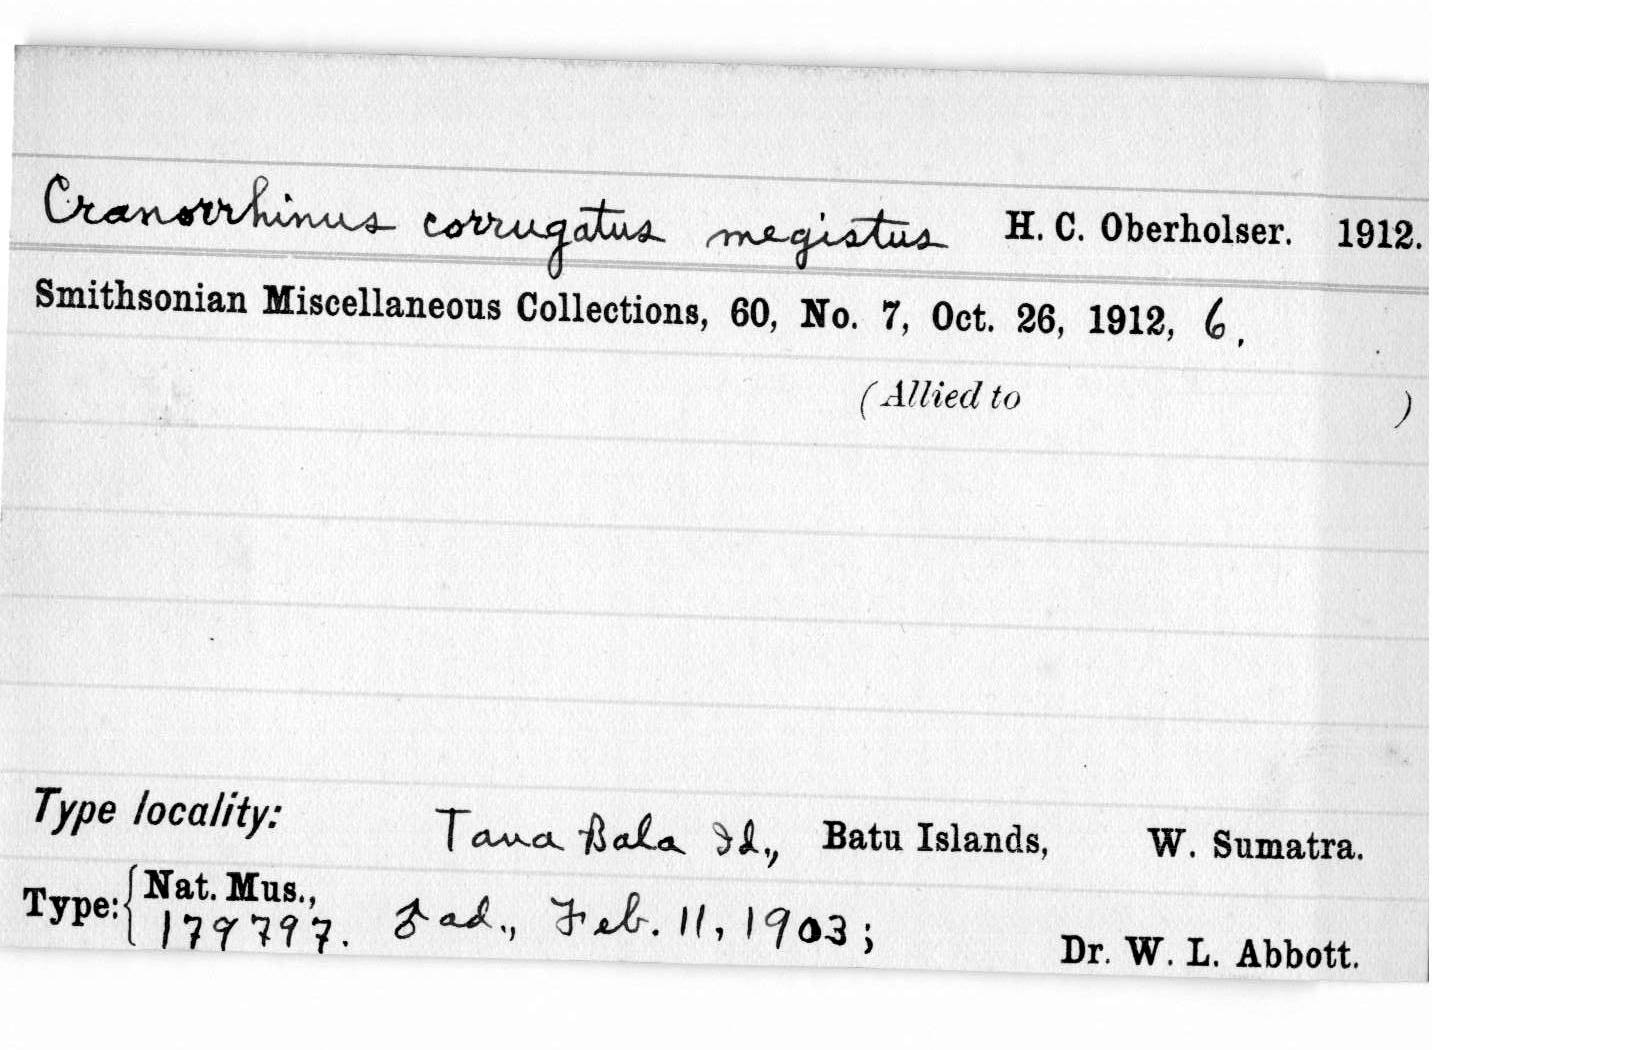 Cranorrhinus corrugatus megistus H. C. Oberholser. 1912.
Smithsonian Miscellaneous Collections, 60, No. 7, Oct. 26, 1912, 6.
(Allied to )
Type locality: Tana Bala Id., Batu Islands, W. Sumatra.
Type: { Nat. Mus.,
179797. ♂ ad., Feb. 11, 1903; Dr. W. L. Abbott.